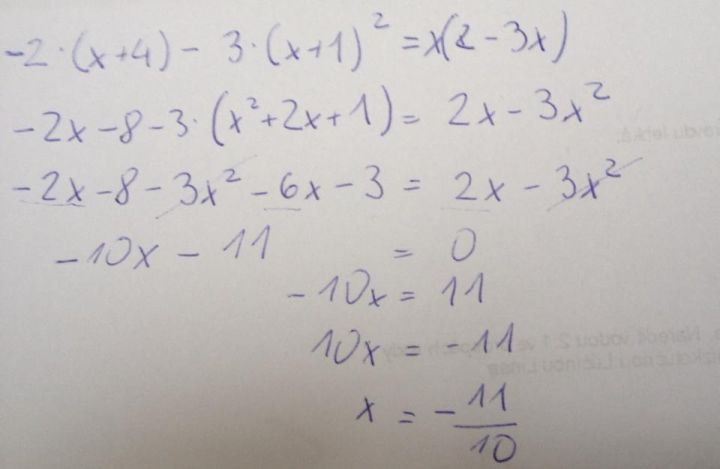 -2·(x+4) - 3·(x+1)² = x(2 - 3x)
-2x - 8 - 3·(x²+2x+1) = 2x - 3x²
-2x - 8 - 3x² - 6x - 3 = 2x - 3x²
-10x - 11 = 0
-10x = 11
10x = -11
x = -11/10